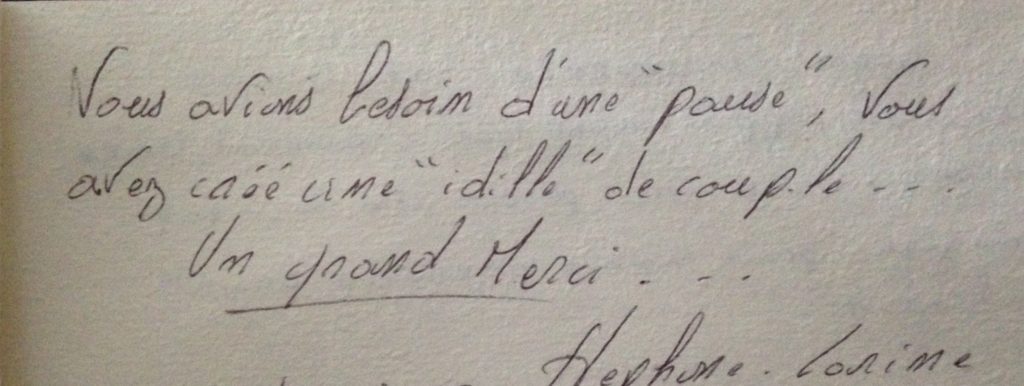 Nous avions besoin d'une "pause", Vous
avez créé une "idille" de couple ...
Un grand Merci . . .
Stephane. Corinne